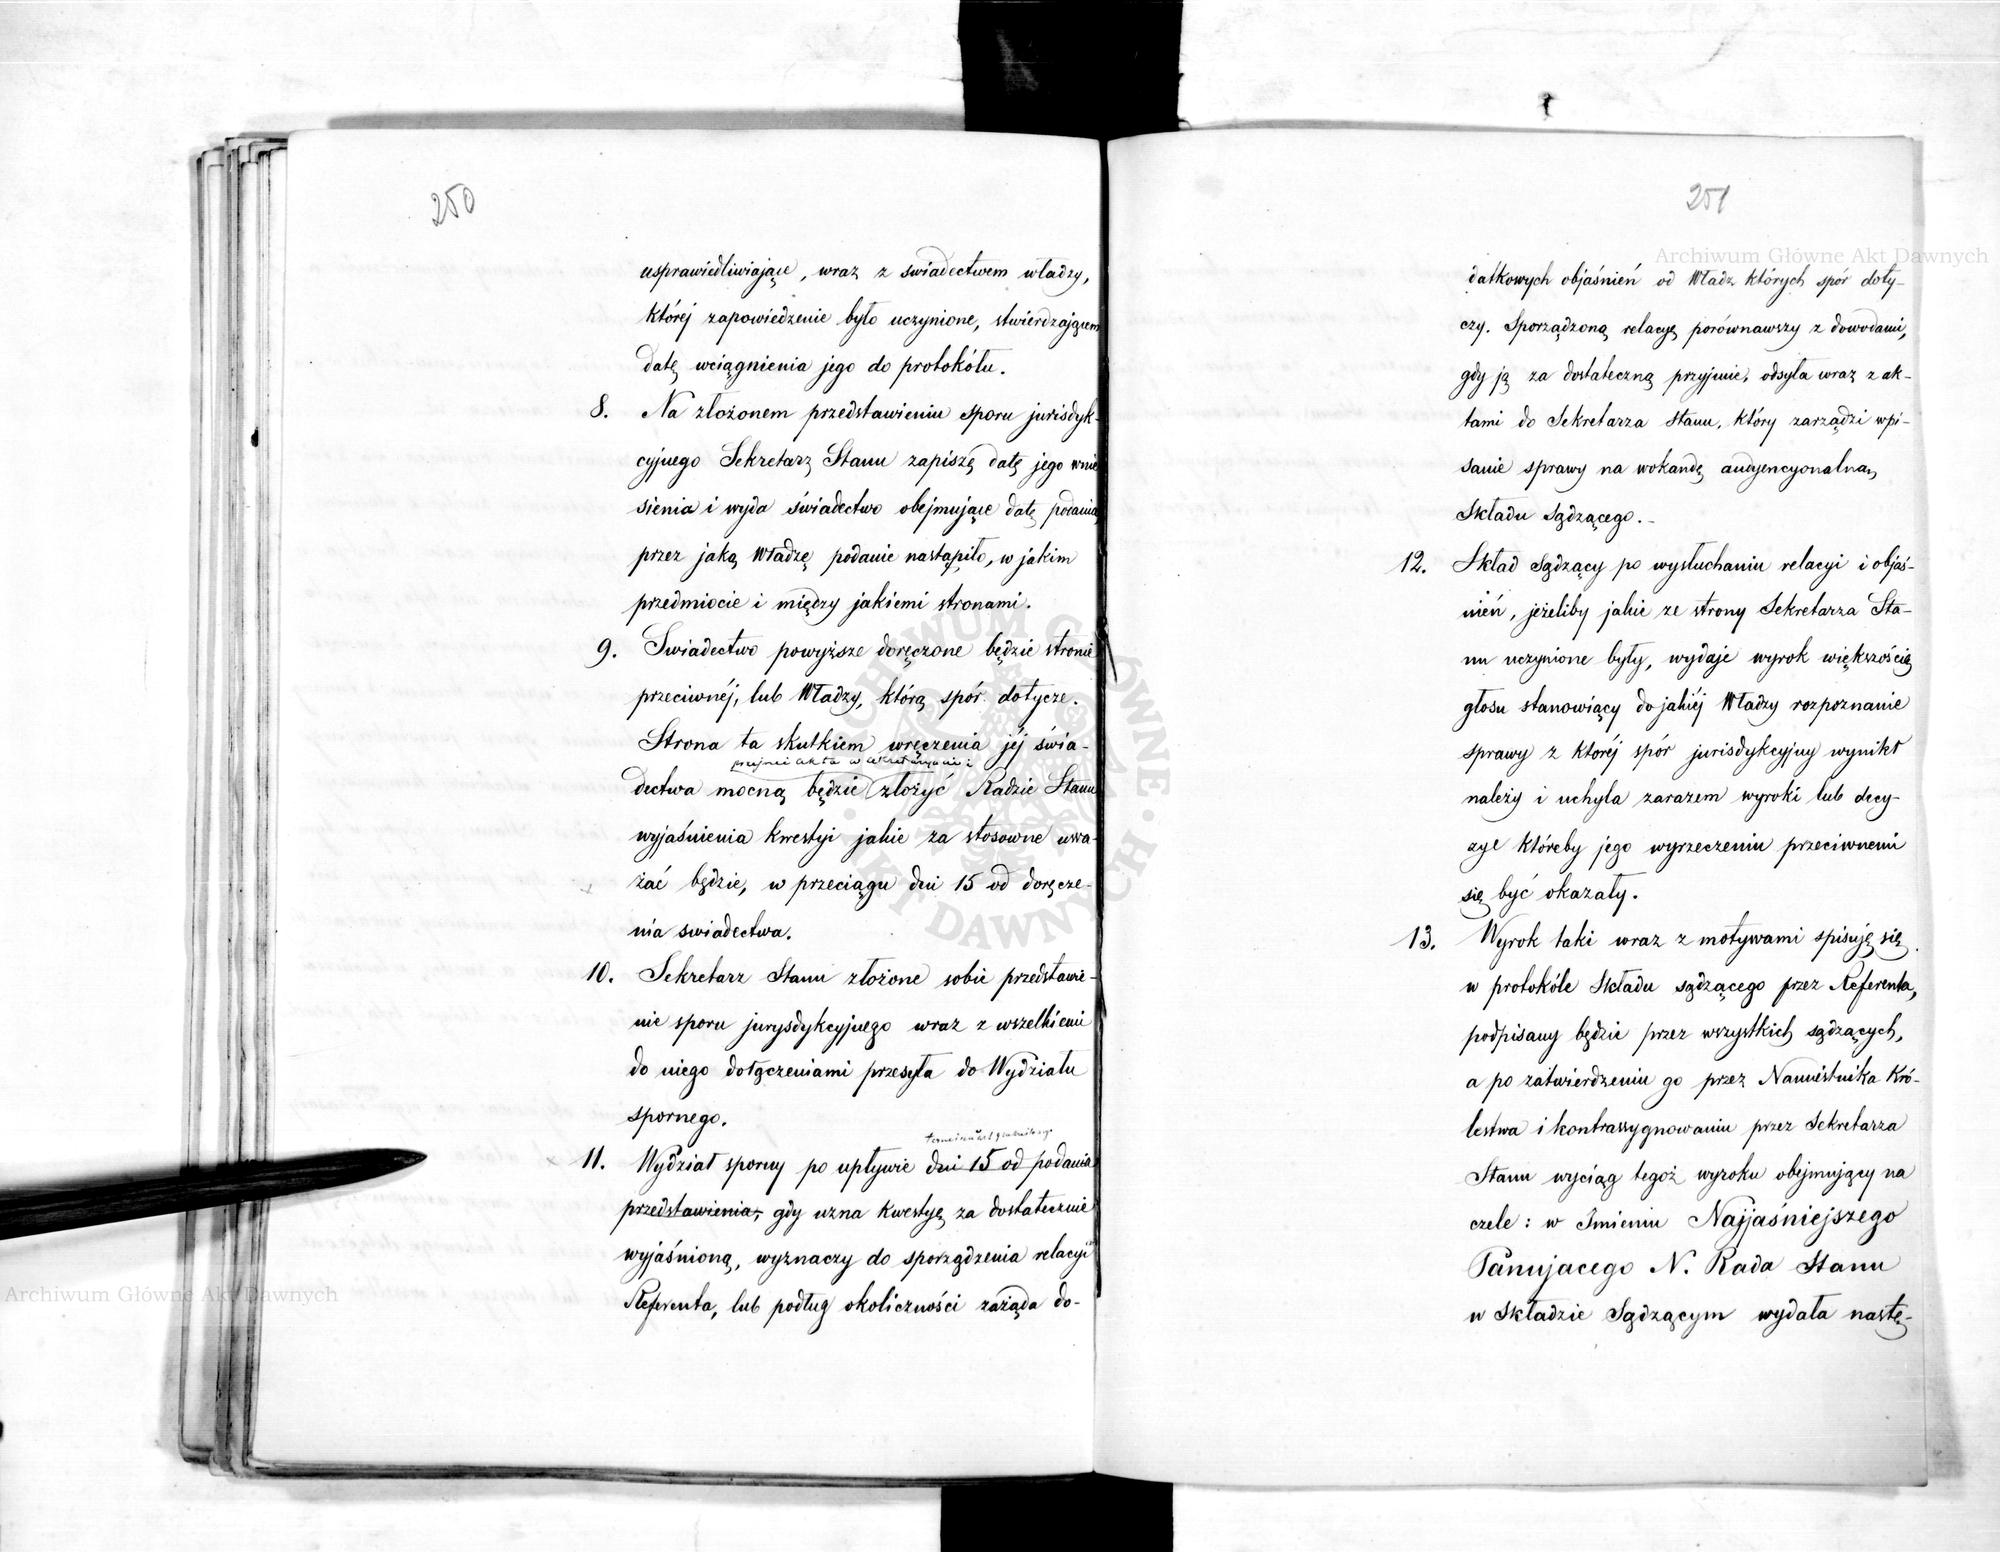 250
usprawiedliwiające, wraz z swiadectwem władzy,
której zapowiedzenie było uczynione, stwierdzającem
datę wciągnienia jego do protokółu.
8. Na złożonem przedstawieniu sporu jurisdyk-
cyjnego Sekretarz Stanu zapiszę datę jego wnie
sienia i wyda świadectwo obejmujące datę podania,
przez jaką Władzę podanie nastąpiło, w jakim
przedmiocie i między jakiemi stronami.
9. Swiadectwo powyższe doręczone będzie stronie
przeciwnéj, lub Władzy, którą spór dotycze.
Strona ta skutkiem wręczenia jéj świa-
przejrzeć akta w
dectwa mocną będzie złożyć Radzie Stanu
wyjaśnienia kwestyi jakie za stosowne uwa-
żać będzie, w przeciągu dni 15 od doręcze-
nia swiadectwa.
10. Sekretarz Stanu złożone sobie przedstawie-
nie sporu jurysdykcyjnego wraz z wszelkiemi
do niego dołączeniami przesyła do Wydziału
spornego.
11. Wydział sporny po upływie dni 15 od podania
przedstawienia, gdy uzna kwestyę za dostatecznie
wyjaśnioną, wyznaczy do sporządzenia relacyi
Referenta, lub podług okoliczności zażąda do-
251
datkowych objaśnień od Władz których spór doty-
czy. Sporządzoną relacyę porównawszy z dowodami,
gdy ją za dostateczną przyjmie, odsyła wraz z ak-
tami do Sekretarza Stanu, który zarządzi wpi-
sanie sprawy na wokandę audyencyonalną
Składu Sądzącego.
12. Skład Sądzący po wysłuchaniu relacyi i objaś-
nień, jeżeliby jakie ze strony Sekretarza Sta-
nu uczynione były, wydaje wyrok większością
głosu stanowiący do jakiéj Władzy rozpoznanie
sprawy z któréj spór jurisdykcyjny wynikł
należy i uchyla zarazem wyroki lub decy-
zye któreby jego wyrzeczeniu przeciwnemi
się być okazały.
13. Wyrok taki wraz z motywami spisuję się
w protokóle Składu sądzącego przez Referenta,
podpisany będzie przez wszystkich sądzących,
a po zatwierdzeniu go przez Namiestnika Kró-
lestwa i kontrassygnowaniu przez Sekretarza
Stanu wyciąg tegoż wyroku obejmujący na
czele: w Imieniu Najjaśniejszego
Panujacego N. Rada Stanu
w Składzie Sądzącym wydała nastę-
Archiwum Główne Akt Dawnych
Archiwum Główne Akt Dawnych
ARCHIWUM GŁÓWNE AKT DAWNYCH